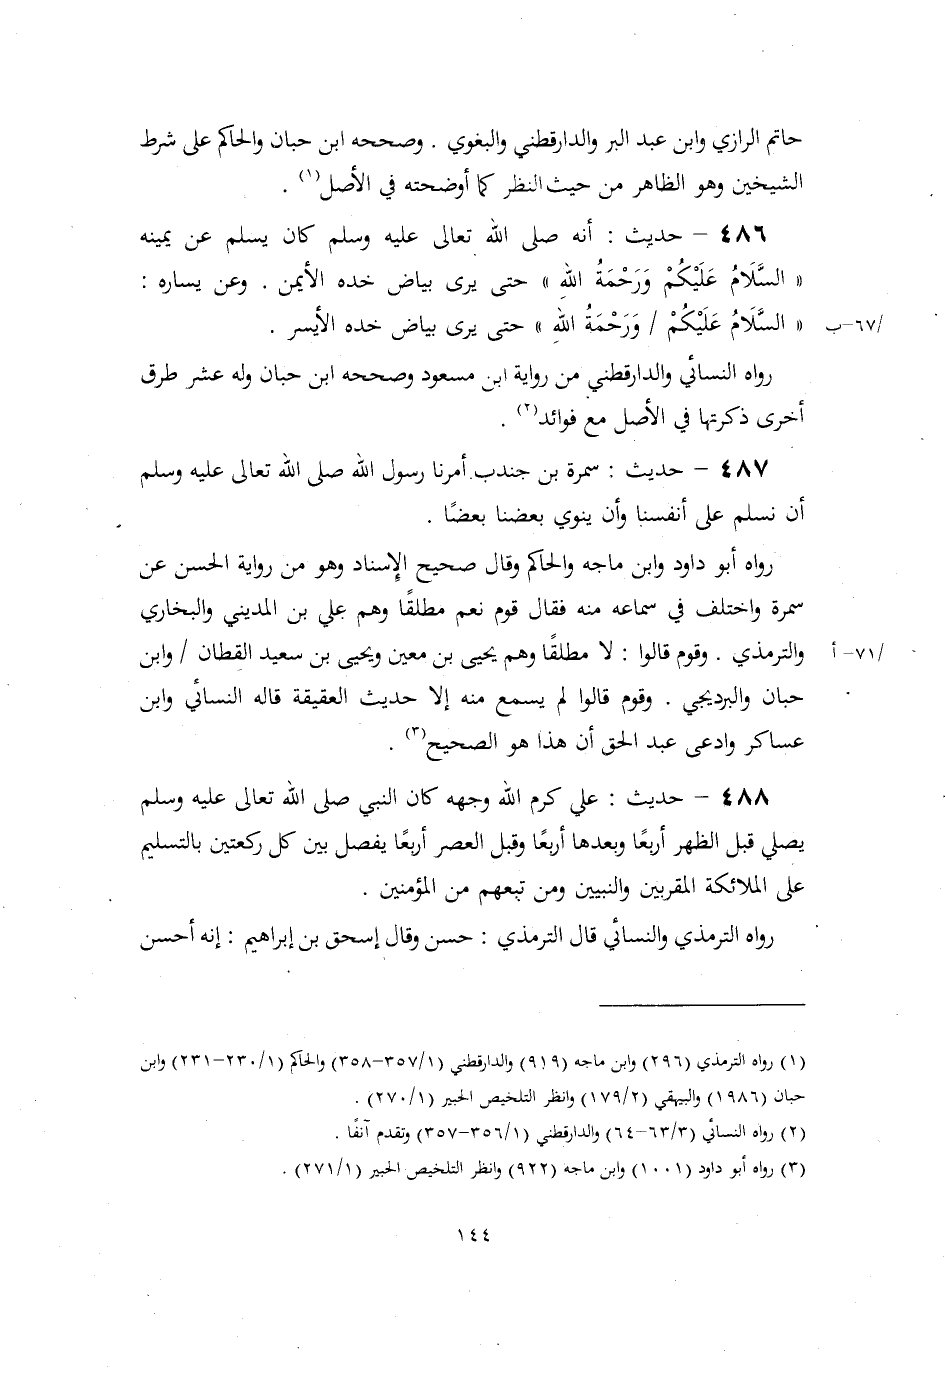 حاتم الرازي وابن عبد البر والدارقطني والبغوي . وصححه ابن حبان والحاكم على شرط
الشيخين وهو الظاهر من حيث النظر كما أوضحته في الأصل(١) .
٤٨٦ – حديث : أنه صلى الله تعالى عليه وسلم كان يسلم عن يمينه
« السَّلَامُ عَلَيْكُمْ وَرَحْمَةُ اللهِ » حتى يرى بياض خده الأيمن . وعن يساره :
« السَّلَامُ عَلَيْكُمْ / وَرَحْمَةُ اللهِ » حتى يرى بياض خده الأيسر .
/٦٧–ب
رواه النسائي والدارقطني من رواية ابن مسعود وصححه ابن حبان وله عشر طرق
أخرى ذكرتها في الأصل مع فوائد(٢) .
٤٨٧ – حديث : سمرة بن جندب أمرنا رسول الله صلى الله تعالى عليه وسلم
أن نسلم على أنفسنا وأن ينوي بعضنا بعضًا .
رواه أبو داود وابن ماجه والحاكم وقال صحيح الإسناد وهو من رواية الحسن عن
سمرة واختلف في سماعه منه فقال قوم نعم مطلقًا وهم علي بن المديني والبخاري
والترمذي . وقوم قالوا : لا مطلقًا وهم يحيى بن معين ويحيى بن سعيد القطان / وابن
/٧١–أ
حبان والبرديجي . وقوم قالوا لم يسمع منه إلا حديث العقيقة قاله النسائي وابن
عساكر وادعى عبد الحق أن هذا هو الصحيح(٣) .
٤٨٨ – حديث : علي كرم الله وجهه كان النبي صلى الله تعالى عليه وسلم
يصلي قبل الظهر أربعًا وبعدها أربعًا وقبل العصر أربعًا يفصل بين كل ركعتين بالتسليم
على الملائكة المقربين والنبيين ومن تبعهم من المؤمنين .
رواه الترمذي والنسائي قال الترمذي : حسن وقال إسحق بن إبراهيم : إنه أحسن
(١) رواه الترمذي (٢٩٦) وابن ماجه (٩١٩) والدارقطني (٣٥٧/١–٣٥٨) والحاكم (٢٣٠/١–٢٣١) وابن
حبان (١٩٨٦) والبيهقي (١٧٩/٢) وانظر التلخيص الحبير (٢٧٠/١) .
(٢) رواه النسائي (٦٣/٣–٦٤) والدارقطني (٣٥٦/١–٣٥٧) وتقدم آنفًا .
(٣) رواه أبو داود (١٠٠١) وابن ماجه (٩٢٢) وانظر التلخيص الحبير (٢٧١/١) .
١٤٤